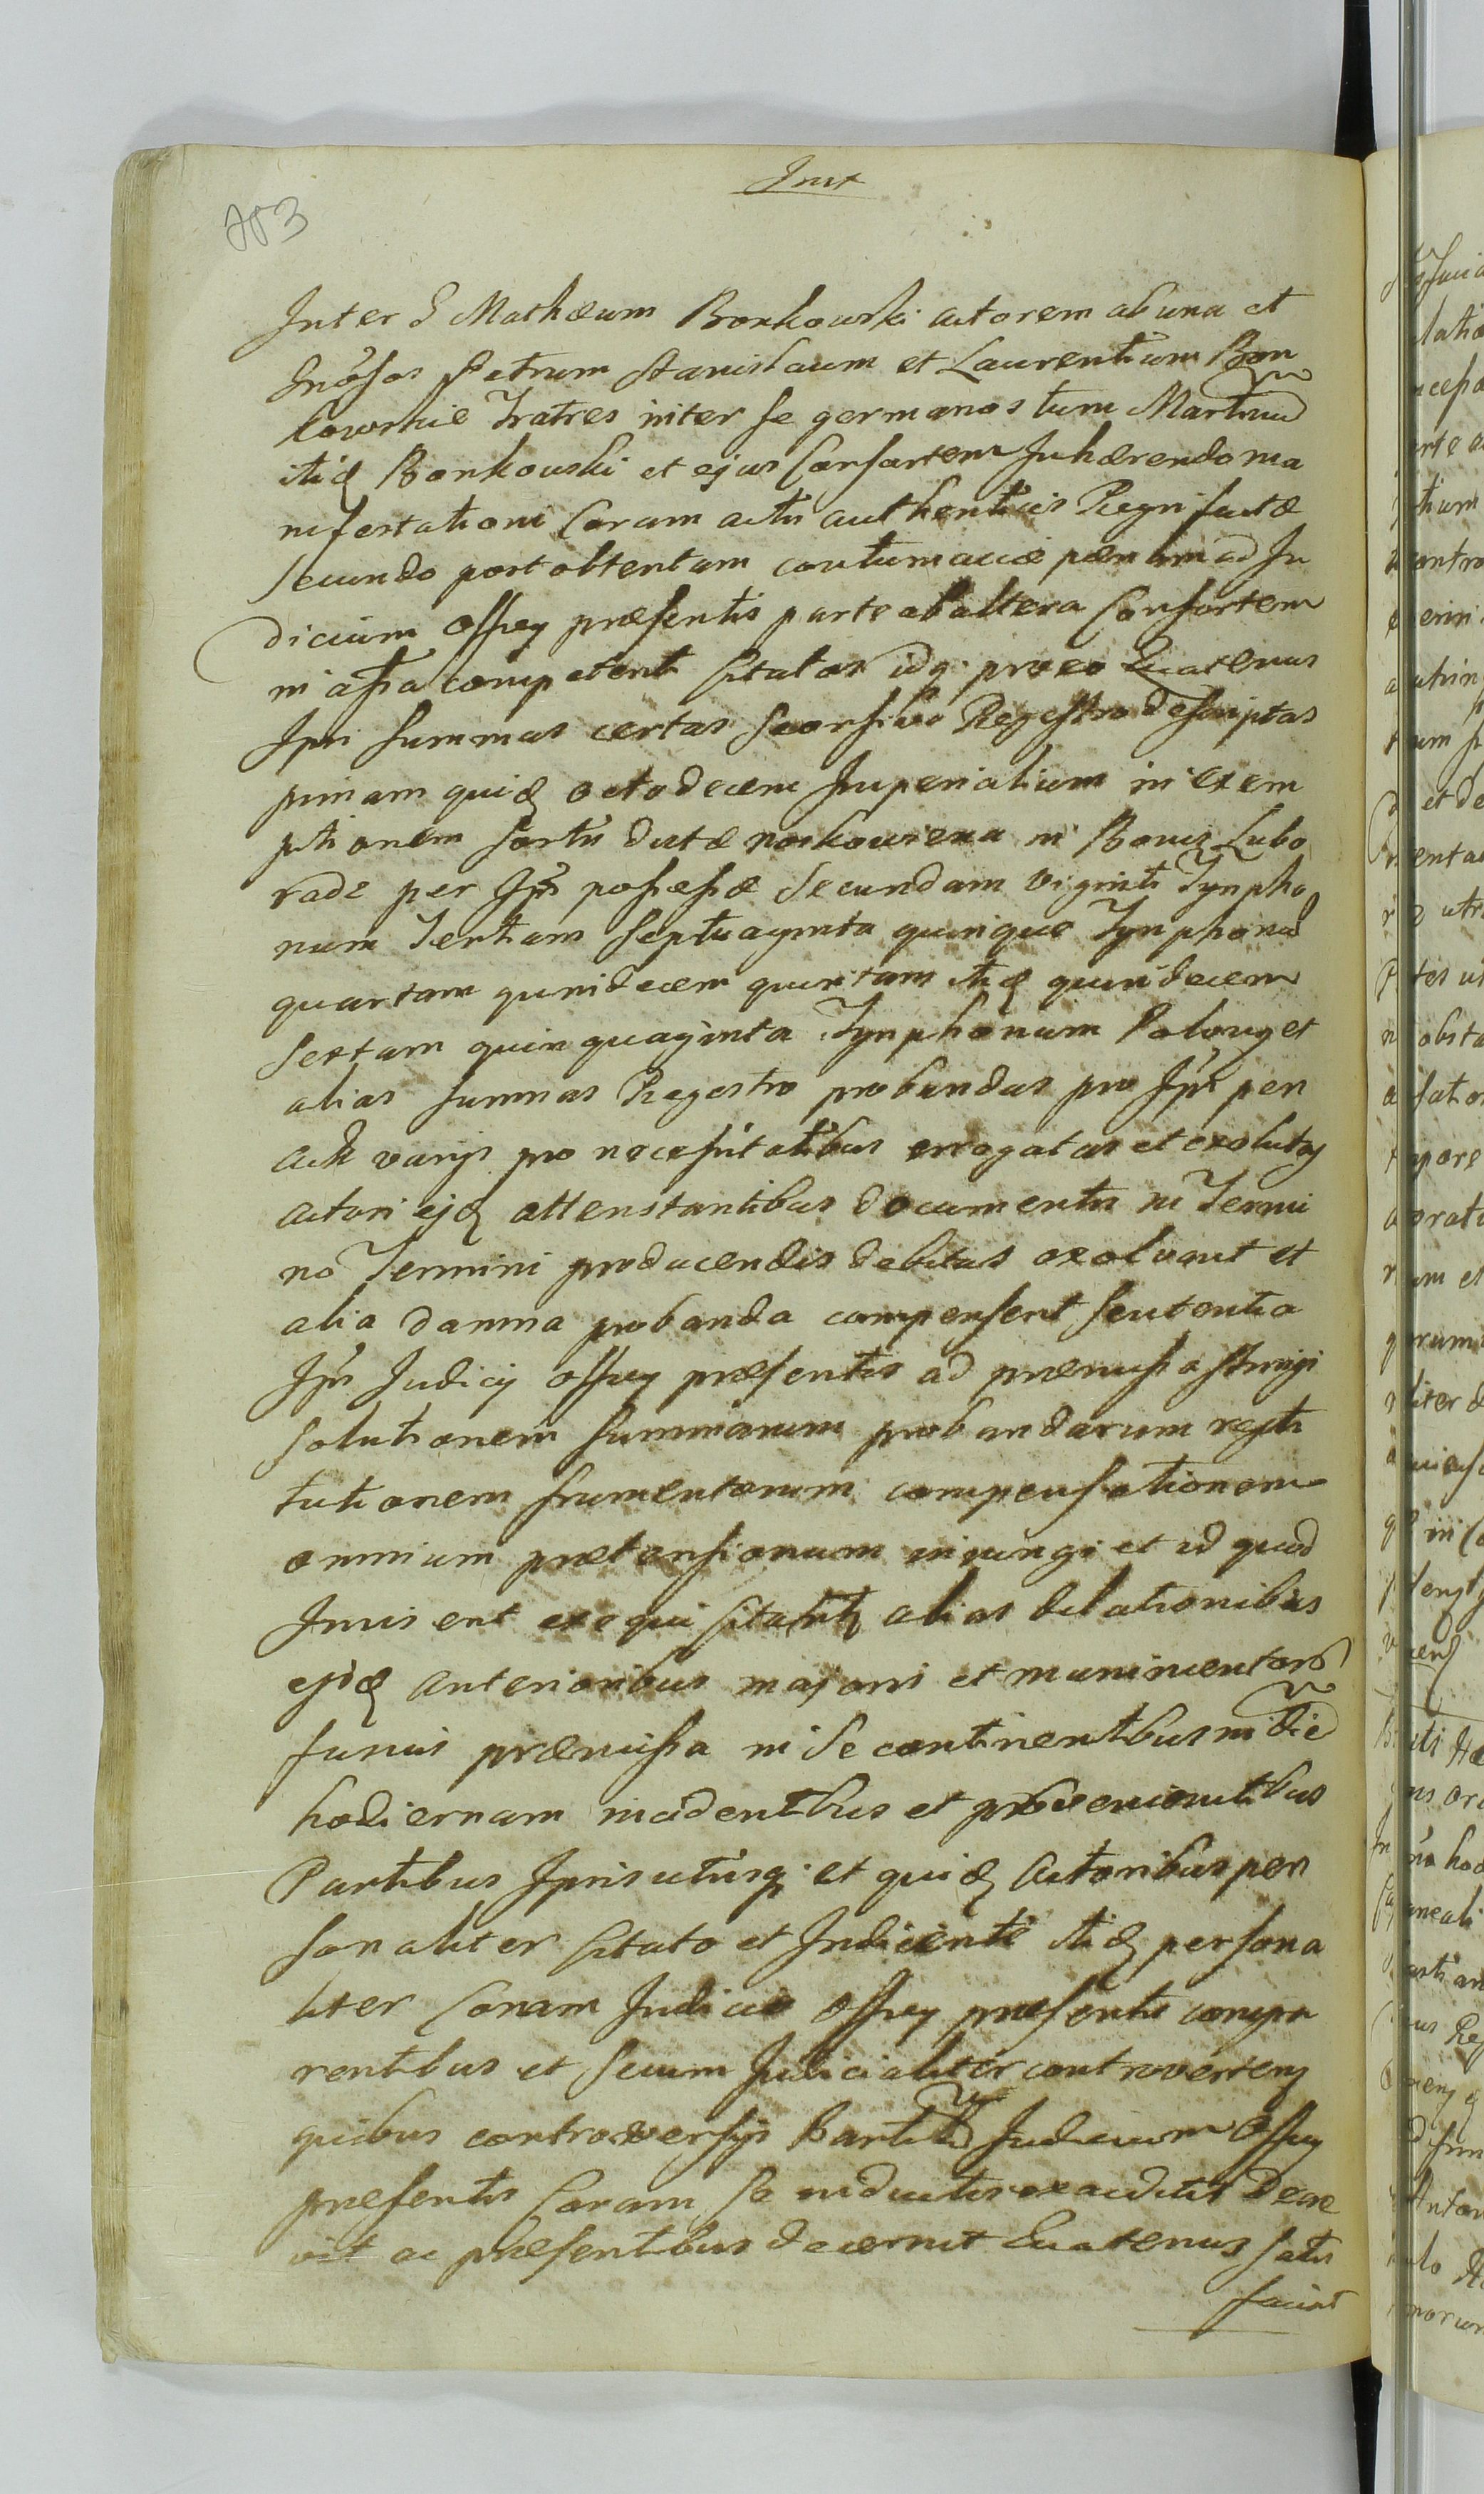 Inst
Inter G Mathæum Bonkowski actorem ab una et
Gnosos Petrum Stanislaum et Laurentium Bon
kowskie Fratres inter se germanos tum Martinum
itid Bonkowski et ejus Consortem Inhærendo ma
nifestationi Coram actis authenticis Regni factæ
Secundo post obtentam contumaciæ pænam ad Ju
dicium Offey præsentis parte ab altera Consortem
in assa competenti Citatos idq. pro eo Quatenus
Ipsi summas certas Seorsivo Regestro descriptas
primam quid octodecem Imperialium in exem
ptionem sortis dictæ noskowizna in Bonis Lubo
radz per Ips possessæ Secundam viginti Tynpho
num Tertiam septuaginta quinque Tynphonu
quartam quindecem quintam itid quindecem
Sextam quinquaginta Tynphonum Polony et
alias summas Regestro probandas pro Ips per
Actt varijs pro necessitatibus errogatas et exolutas
actori ejd attenstantibus documentis in Termi
no Termini producendis debitas exolvant et
alia damna probanda compensent sententia
Ips Judicij offey præsentis ad præmissa stringi
solutionem summarum probandarum resti
tutionem frumentorum compensationem
omnium prætensionum injungi et id quod
Juris erit exequi Citatis alias dilationibus
ejsd anterioribus majori et munimentorum
funus præmissa in se continentibus in die
hodiernam incidentibus et provenientibus
Partibus Ipsis utrisq. et quid Actoribus per
sonaliter Citato et Indicente itid persona
liter Coram Judicio Offey præsentis compa
rentibus et secum Judicialiter controvertens
quibus controversijs Partium Judicium Offey
præsentis Coram se inductis exauditis Decre
vit ac præsentibus decernit Quatenus satis
faciat